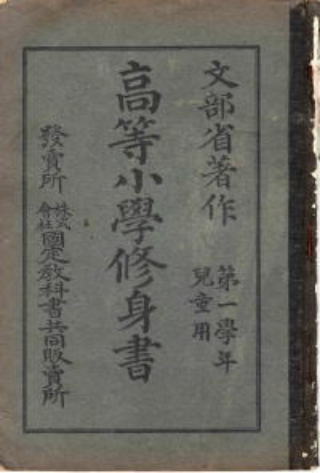 文部省著作
第一學年
兒童用
高等小學修身書
發賣所
株式
會社
國定教科書共同販賣所